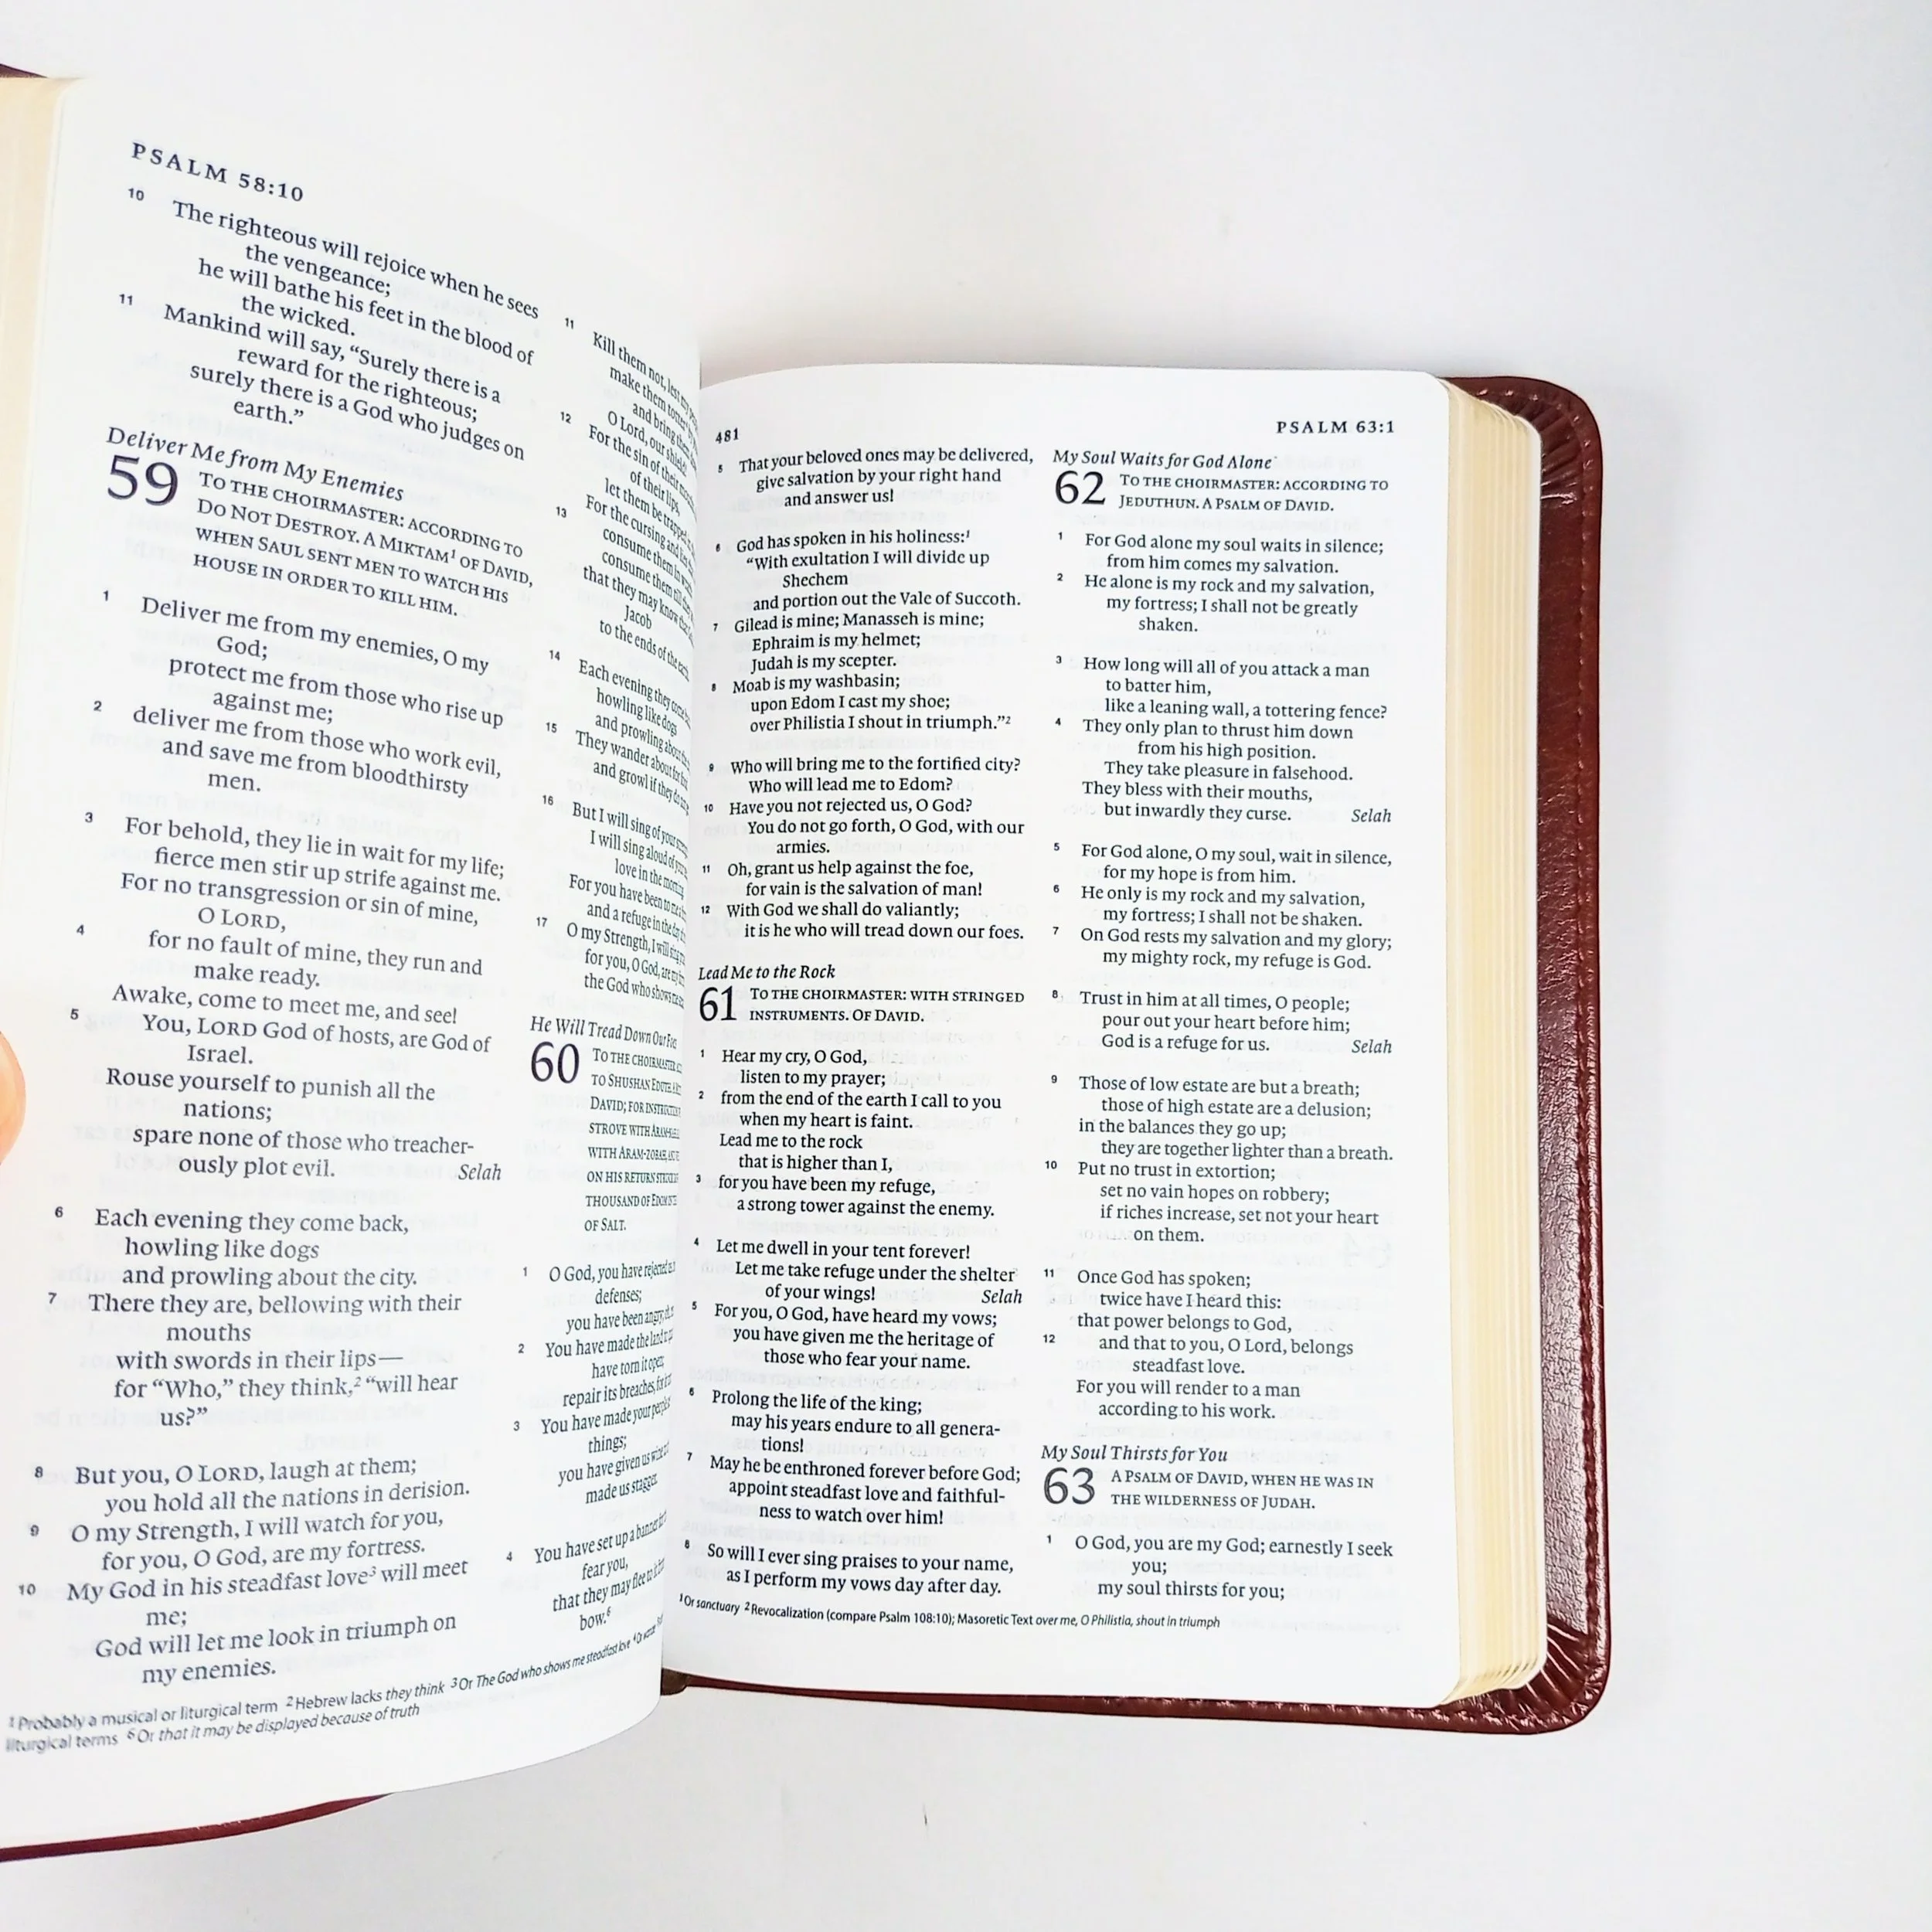 PSALM 58:10
10 The righteous will rejoice when he sees
the vengeance;
he will bathe his feet in the blood of
the wicked.
11 Mankind will say, “Surely there is a
reward for the righteous;
surely there is a God who judges on
earth.”
Deliver Me from My Enemies
59 TO THE CHOIRMASTER: ACCORDING TO
DO NOT DESTROY. A MIKTAM¹ OF DAVID,
WHEN SAUL SENT MEN TO WATCH HIS
HOUSE IN ORDER TO KILL HIM.
1 Deliver me from my enemies, O my
God;
protect me from those who rise up
against me;
2 deliver me from those who work evil,
and save me from bloodthirsty
men.
3 For behold, they lie in wait for my life;
fierce men stir up strife against me.
For no transgression or sin of mine,
O LORD,
4 for no fault of mine, they run and
make ready.
Awake, come to meet me, and see!
5 You, LORD God of hosts, are God of
Israel.
Rouse yourself to punish all the
nations;
spare none of those who treacher-
ously plot evil. Selah
6 Each evening they come back,
howling like dogs
and prowling about the city.
7 There they are, bellowing with their
mouths
with swords in their lips—
for “Who,” they think,² “will hear
us?”
8 But you, O LORD, laugh at them;
you hold all the nations in derision.
9 O my Strength, I will watch for you,
for you, O God, are my fortress.
10 My God in his steadfast love³ will meet
me;
God will let me look in triumph on
my enemies.
11 Kill them not, lest my
make them totter by
and bring them
O Lord, our shield!
12 For the sin of their
of their lips,
let them be trapped
13 For the cursing and
consume them in
consume them till
that they may know that
Jacob
to the ends of the
14 Each evening they come
howling like dogs
and prowling about
15 They wander about for
and growl if they do
16 But I will sing of your
I will sing aloud of your
love in the
For you have been to me
and a refuge in the day
17 O my Strength, I will sing
for you, O God, are my
the God who shows me
He Will Tread Down Our Foes
60 TO THE CHOIRMASTER
TO SHUSHAN EDUTH.
DAVID; FOR INSTRUCTION
STROVE WITH
WITH ARAM-ZOBAH,
ON HIS RETURN STRUCK
THOUSAND OF EDOM
OF SALT.
1 O God, you have rejected
defenses;
you have been angry;
2 You have made the land
have torn it open;
repair its breaches, for
3 You have made your people
things;
you have given us wine
made us stagger.
4 You have set up a banner
fear you,
that they may flee to
bow.⁶
¹ Probably a musical or liturgical term ² Hebrew lacks they think ³ Or The God who shows me steadfast love
liturgical terms ⁶ Or that it may be displayed because of truth
481
PSALM 63:1
5 That your beloved ones may be delivered,
give salvation by your right hand
and answer us!
6 God has spoken in his holiness:¹
“With exultation I will divide up
Shechem
and portion out the Vale of Succoth.
7 Gilead is mine; Manasseh is mine;
Ephraim is my helmet;
Judah is my scepter.
8 Moab is my washbasin;
upon Edom I cast my shoe;
over Philistia I shout in triumph.”²
9 Who will bring me to the fortified city?
Who will lead me to Edom?
10 Have you not rejected us, O God?
You do not go forth, O God, with our
armies.
11 Oh, grant us help against the foe,
for vain is the salvation of man!
12 With God we shall do valiantly;
it is he who will tread down our foes.
Lead Me to the Rock
61 TO THE CHOIRMASTER: WITH STRINGED
INSTRUMENTS. OF DAVID.
1 Hear my cry, O God,
listen to my prayer;
2 from the end of the earth I call to you
when my heart is faint.
Lead me to the rock
that is higher than I,
3 for you have been my refuge,
a strong tower against the enemy.
4 Let me dwell in your tent forever!
Let me take refuge under the shelter
of your wings! Selah
5 For you, O God, have heard my vows;
you have given me the heritage of
those who fear your name.
6 Prolong the life of the king;
may his years endure to all genera-
tions!
7 May he be enthroned forever before God;
appoint steadfast love and faithful-
ness to watch over him!
8 So will I ever sing praises to your name,
as I perform my vows day after day.
My Soul Waits for God Alone
62 TO THE CHOIRMASTER: ACCORDING TO
JEDUTHUN. A PSALM OF DAVID.
1 For God alone my soul waits in silence;
from him comes my salvation.
2 He alone is my rock and my salvation,
my fortress; I shall not be greatly
shaken.
3 How long will all of you attack a man
to batter him,
like a leaning wall, a tottering fence?
4 They only plan to thrust him down
from his high position.
They take pleasure in falsehood.
They bless with their mouths,
but inwardly they curse. Selah
5 For God alone, O my soul, wait in silence,
for my hope is from him.
6 He only is my rock and my salvation,
my fortress; I shall not be shaken.
7 On God rests my salvation and my glory;
my mighty rock, my refuge is God.
8 Trust in him at all times, O people;
pour out your heart before him;
God is a refuge for us. Selah
9 Those of low estate are but a breath;
those of high estate are a delusion;
in the balances they go up;
they are together lighter than a breath.
10 Put no trust in extortion;
set no vain hopes on robbery;
if riches increase, set not your heart
on them.
11 Once God has spoken;
twice have I heard this:
that power belongs to God,
12 and that to you, O Lord, belongs
steadfast love.
For you will render to a man
according to his work.
My Soul Thirsts for You
63 A PSALM OF DAVID, WHEN HE WAS IN
THE WILDERNESS OF JUDAH.
1 O God, you are my God; earnestly I seek
you;
my soul thirsts for you;
¹ Or sanctuary ² Revocalization (compare Psalm 108:10); Masoretic Text over me, O Philistia, shout in triumph